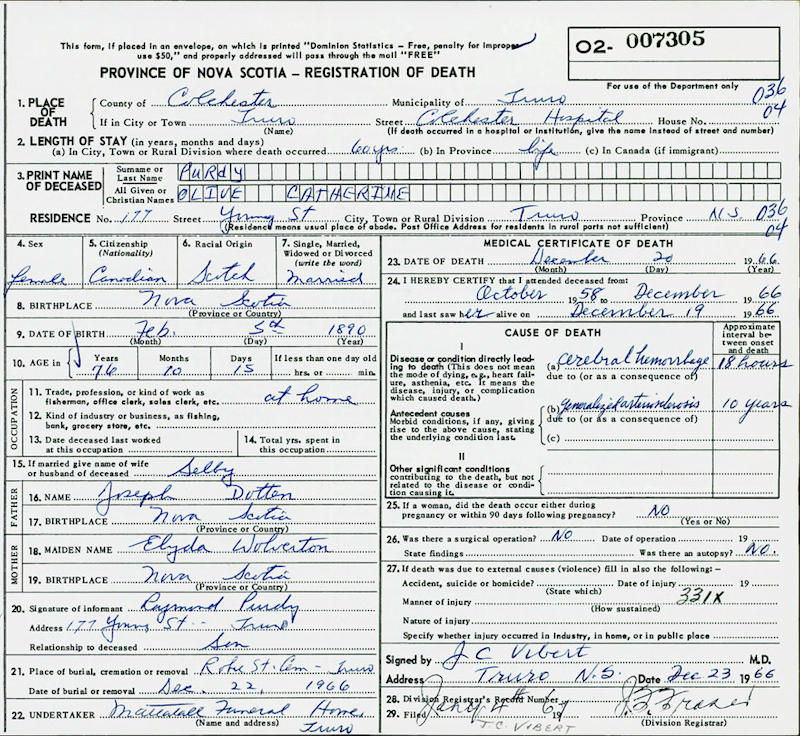 This form, if placed in an envelope, on which is printed "Dominion Statistics – Free, penalty for improper
use $50," and properly addressed will pass through the mail "FREE"
O2- 007305
PROVINCE OF NOVA SCOTIA – REGISTRATION OF DEATH
For use of the Department only
1. PLACE OF DEATH
County of Colchester Municipality of Truro 036
If in City or Town Truro Street Colchester Hospital House No. 04
(Name) (If death occurred in a hospital or institution, give the name instead of street and number)
2. LENGTH OF STAY (in years, months and days)
(a) In City, Town or Rural Division where death occurred 60 yrs (b) In Province life (c) In Canada (if immigrant)
3. PRINT NAME OF DECEASED
Surname or Last Name PURDY
All Given or Christian Names OLIVE CATHERINE
RESIDENCE No. 177 Street Young St City, Town or Rural Division Truro Province N.S. 036
(Residence means usual place of abode. Post Office Address for residents in rural parts not sufficient) 04
4. Sex
female
5. Citizenship
(Nationality)
Canadian
6. Racial Origin
Scotch
7. Single, Married,
Widowed or Divorced
(write the word)
Married
8. BIRTHPLACE Nova Scotia
(Province or Country)
9. DATE OF BIRTH Feb. 5th 1890
(Month) (Day) (Year)
10. AGE in
Years Months Days If less than one day old
76 10 15 hrs. or min.
OCCUPATION
11. Trade, profession, or kind of work as
fisherman, office clerk, sales clerk, etc. at home
12. Kind of industry or business, as fishing,
bank, grocery store, etc.
13. Date deceased last worked
at this occupation
14. Total yrs. spent in
this occupation
15. If married give name of wife
or husband of deceased Selby
FATHER
16. NAME Joseph Dotten
17. BIRTHPLACE Nova Scotia
(Province or Country)
MOTHER
18. MAIDEN NAME Elyda Wolverton
19. BIRTHPLACE Nova Scotia
(Province or Country)
20. Signature of informant Raymond Purdy
Address 177 Young St - Truro
Relationship to deceased Son
21. Place of burial, cremation or removal Robie St. Cem - Truro
Date of burial or removal Dec. 22, 1966
22. UNDERTAKER Mattatall Funeral Home,
(Name and address) Truro
MEDICAL CERTIFICATE OF DEATH
23. DATE OF DEATH December 20 1966
(Month) (Day) (Year)
24. I HEREBY CERTIFY that I attended deceased from:
October 1958 to December 1966
and last saw her alive on December 19 1966
CAUSE OF DEATH
Approximate
interval be-
tween onset
and death
I
Disease or condition directly lead-
ing to death (This does not mean
the mode of dying, e.g., heart fail-
ure, asthenia, etc. It means the
disease, injury, or complication
which caused death.)
(a) cerebral hemorrhage 18 hours
due to (or as a consequence of)
Antecedent causes
Morbid conditions, if any, giving
rise to the above cause, stating
the underlying condition last.
(b) generalized arteriosclerosis 10 years
due to (or as a consequence of)
(c)
II
Other significant conditions
contributing to the death, but not
related to the disease or condi-
tion causing it.
25. If a woman, did the death occur either during
pregnancy or within 90 days following pregnancy? NO
(Yes or No)
26. Was there a surgical operation? NO Date of operation 19
State findings Was there an autopsy? NO.
27. If death was due to external causes (violence) fill in also the following: –
Accident, suicide or homicide? Date of injury 19
(State which)
Manner of injury 331X
(How sustained)
Nature of injury
Specify whether injury occurred in industry, in home, or in public place
Signed by J C Vibert M.D.
Address Truro N.S. Date Dec 23 1966
28. Division Registrar's Record Number
29. Filed Jany 4 67
(Division Registrar)
J.C. VIBERT